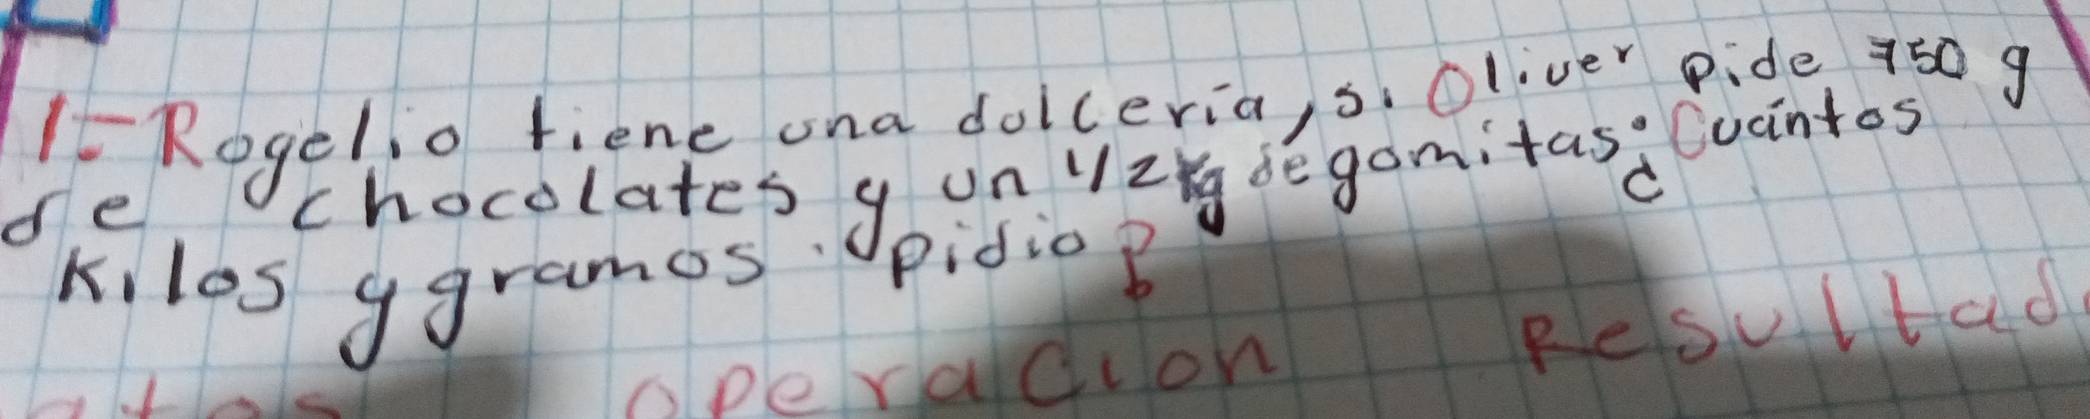 1.- Rogelio tiene una dulcería, si Oliver pide 750 g
de chocolates y un 1/2 kg de gomitas ¿Cuántos
kilos y gramos pidio?
operación Resultad